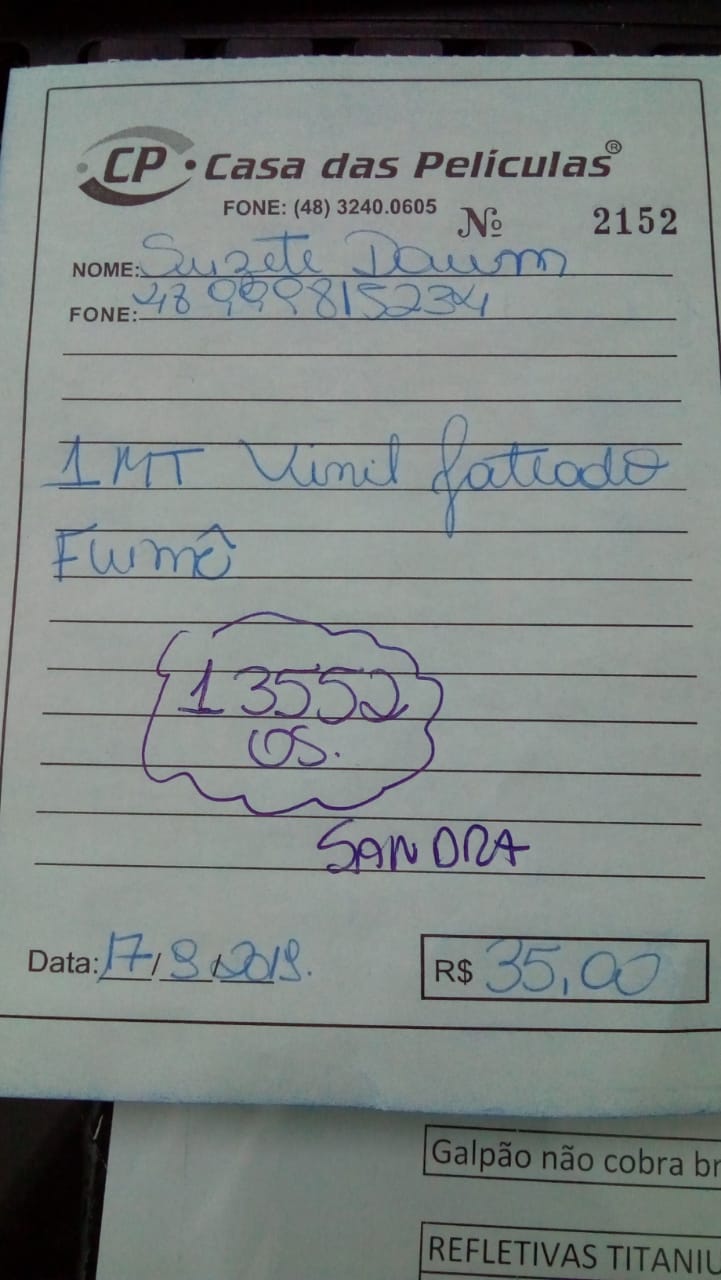 CP • Casa das Películas®
FONE: (48) 3240.0605 Nº 2152
NOME: Suzete Daum
FONE: 48 999815234
1 MT Vinil fateado
Fumê
13552
OS.
SANDRA
Data: 17/9/2019.
R$ 35,00
Galpão não cobra br
REFLETIVAS TITANIU